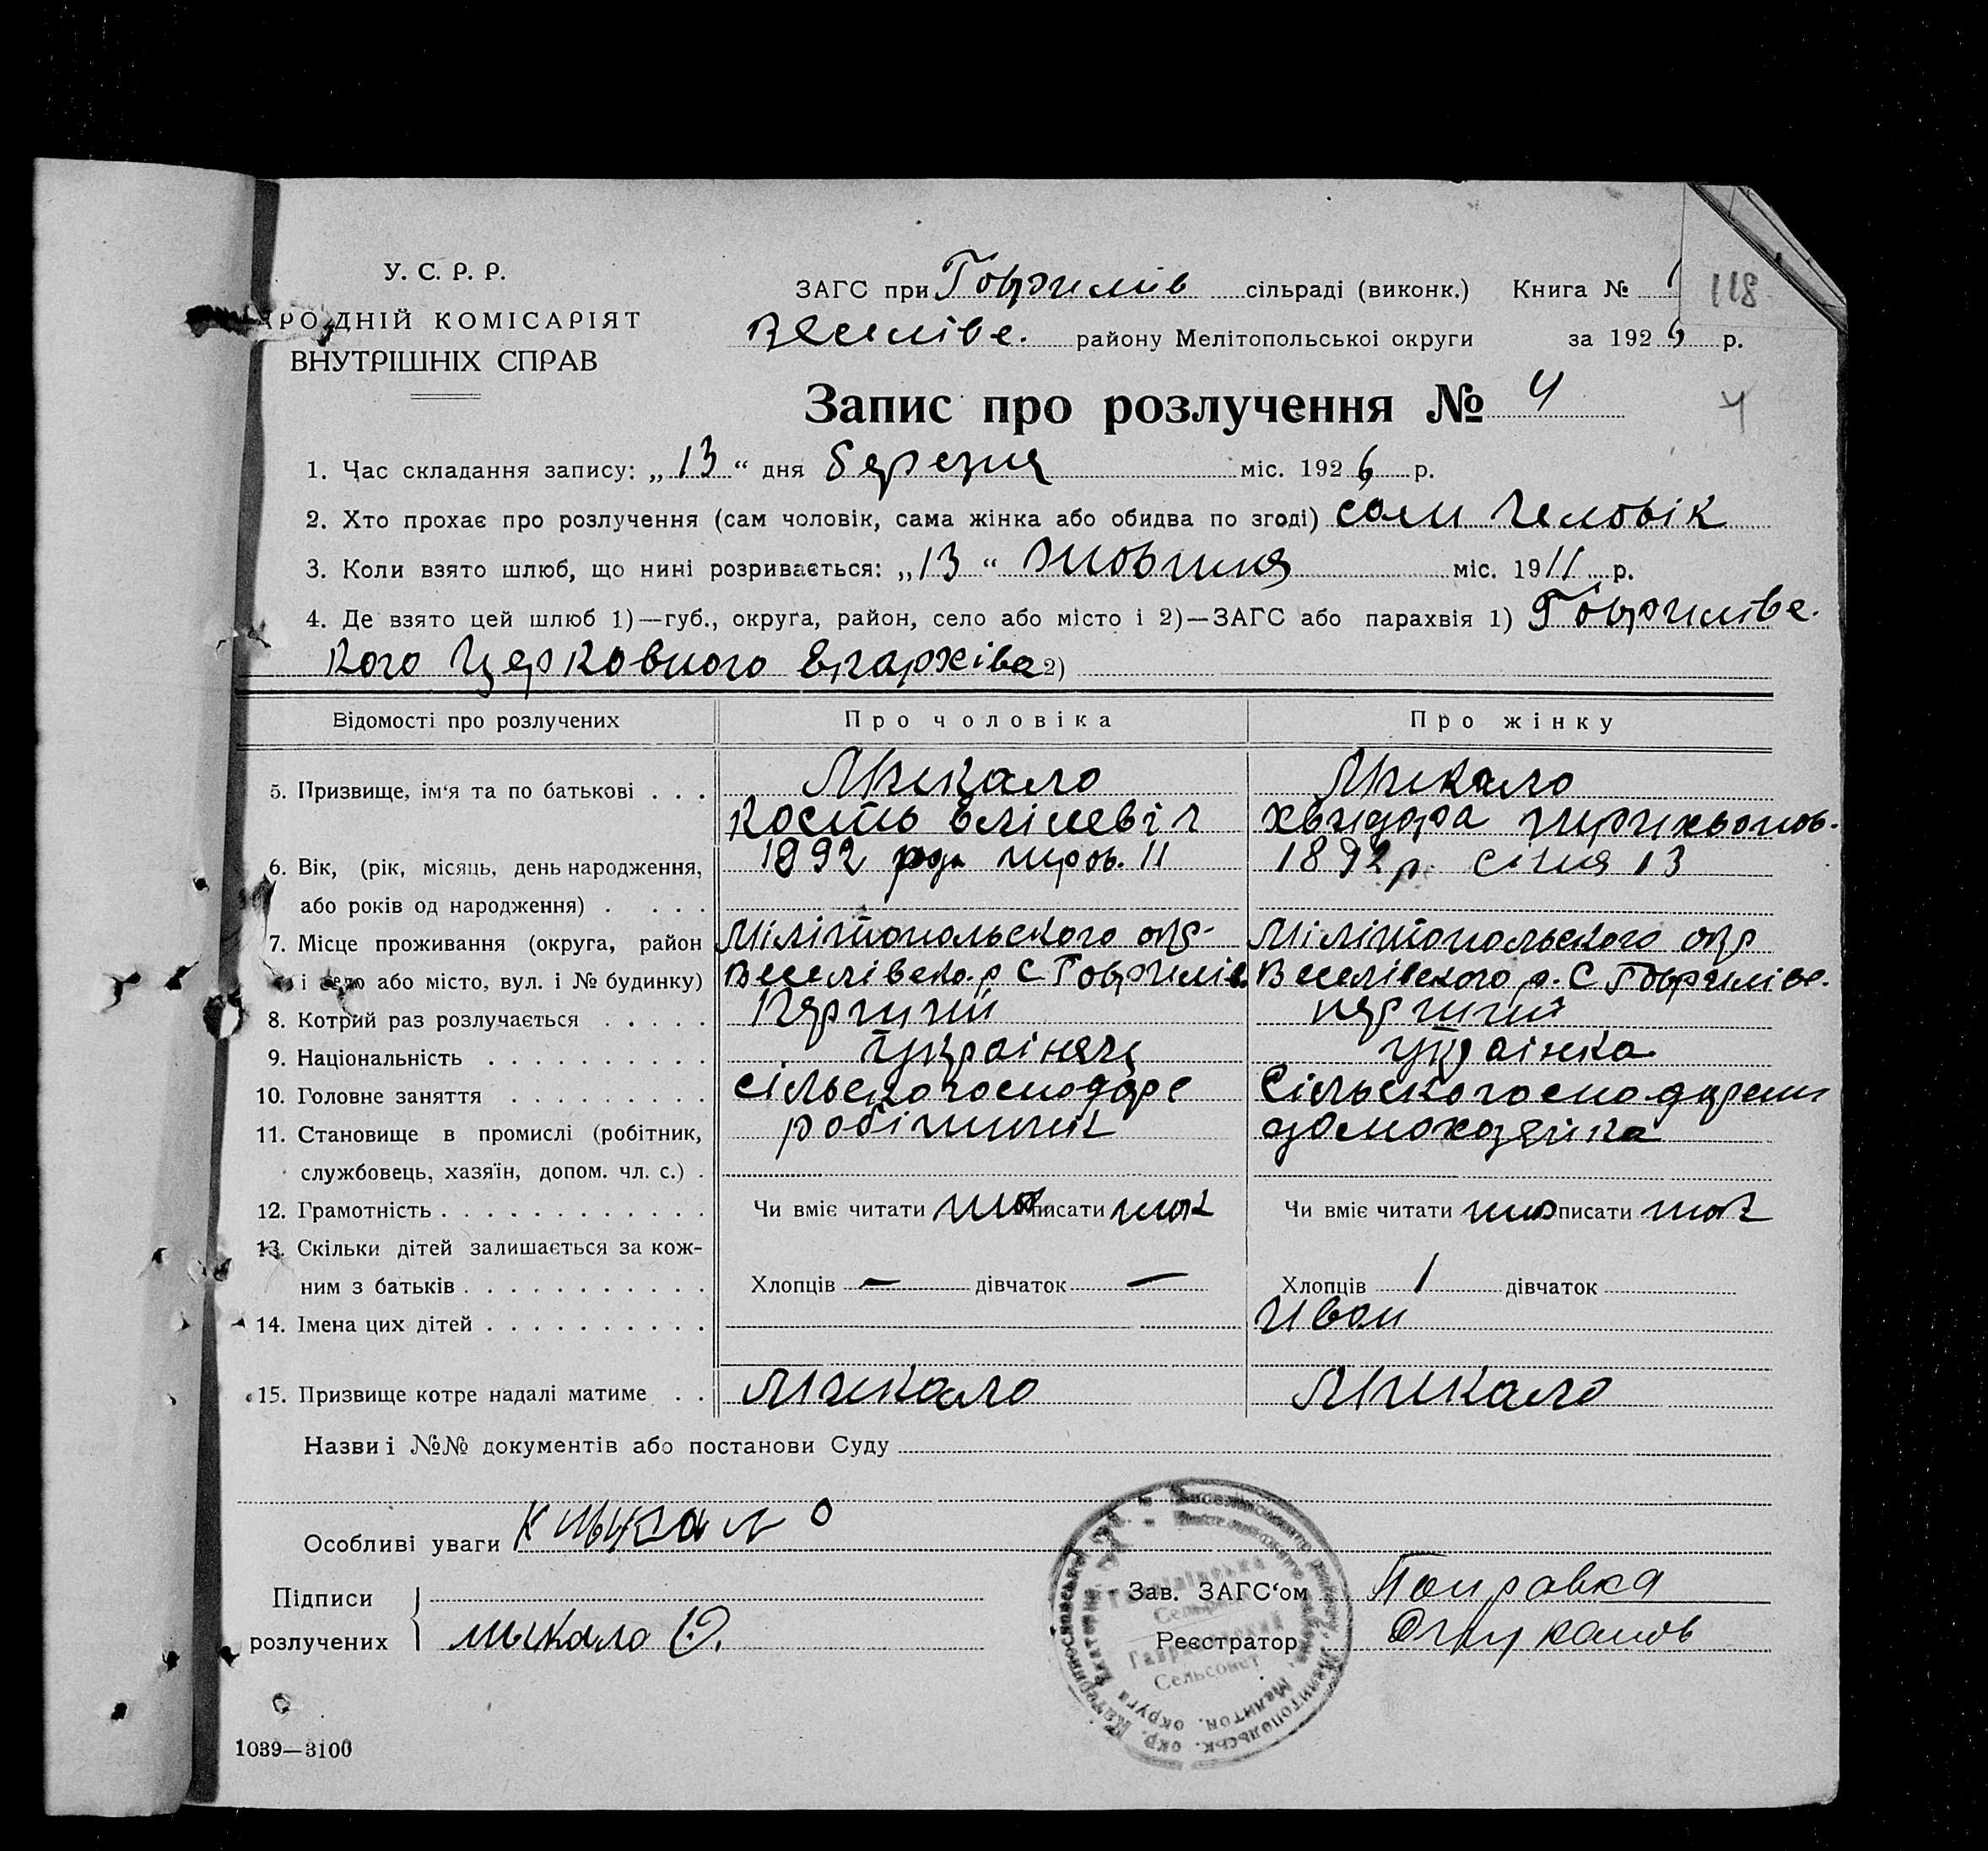 У. С. Р. Р.
РОДНІЙ КОМІСАРІЯТ
ВНУТРІШНІХ СПРАВ
ЗАГС при Гаврилів сільраді (виконк.) Книга № 1 118
Веселіве. району Мелітопольської округи за 1926 р.
Запис про розлучення № 4 4
1. Час складання запису: „13“ дня березня міс. 1926 р.
2. Хто прохає про розлучення (сам чоловік, сама жінка або обидва по згоді) сам человік
3. Коли взято шлюб, що нині розривається: „13“ жовтня міс. 1911 р.
4. Де взято цей шлюб 1)—губ., округа, район, село або місто і 2)—ЗАГС або парахвія 1) Гаврилівс.
кого Церковного 2)
Відомості про розлучених Про чоловіка Про жінку
5. Призвище, ім‘я та по батькові . . . Микало Микало
Кость Хвидора
6. Вік, (рік, місяць, день народження, 1892 11 1892 р. січня 13
або років од народження) . . . .
7. Місце проживання (округа, район Мілітопольского окр. Мілітопольского окр
і село або місто, вул. і № будинку) Веселівско. р С Гаврилів. Веселівского р. С Гаврилівс.
8. Котрий раз розлучається . . . . . Перший перший
9. Національність . . . . . . . . . . Українец українка
10. Головне заняття . . . . . . . . . Сільскогосподарс Сільскогосподарств
11. Становище в промислі (робітник, робітник домохозяйка
службовець, хазяїн, допом. чл. с.) .
12. Грамотність . . . . . . . . . . . . Чи вміє читати писати так Чи вміє читати писати так
13. Скільки дітей залишається за кож-
ним з батьків . . . . . . . . . . . Хлопців — дівчаток — Хлопців 1 дівчаток
14. Імена цих дітей . . . . . . . . . . Иван
15. Призвище котре надалі матиме . . Микало Микало
Назви і №№ документів або постанови Суду
Особливі уваги К Мыкало
Підписи
розлучених Микало Зав. ЗАГС‘ом Поправка
Реєстратор
Сельсовет
1039—3100